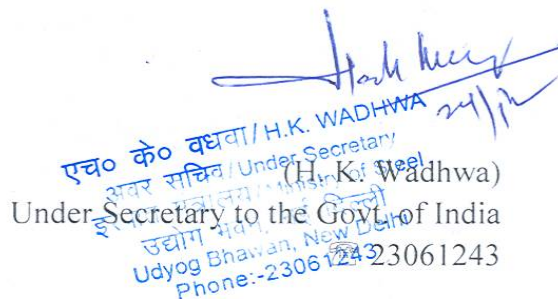 एच० के० वधवा/H.K. WADHWA
अवर सचिव/Under Secretary
इस्पात मंत्रालय/Ministry of Steel
उद्योग भवन, नई दिल्ली
Udyog Bhawan, New Delhi
Phone:-23061243
(H. K. Wadhwa)
Under Secretary to the Govt. of India
☎ 23061243